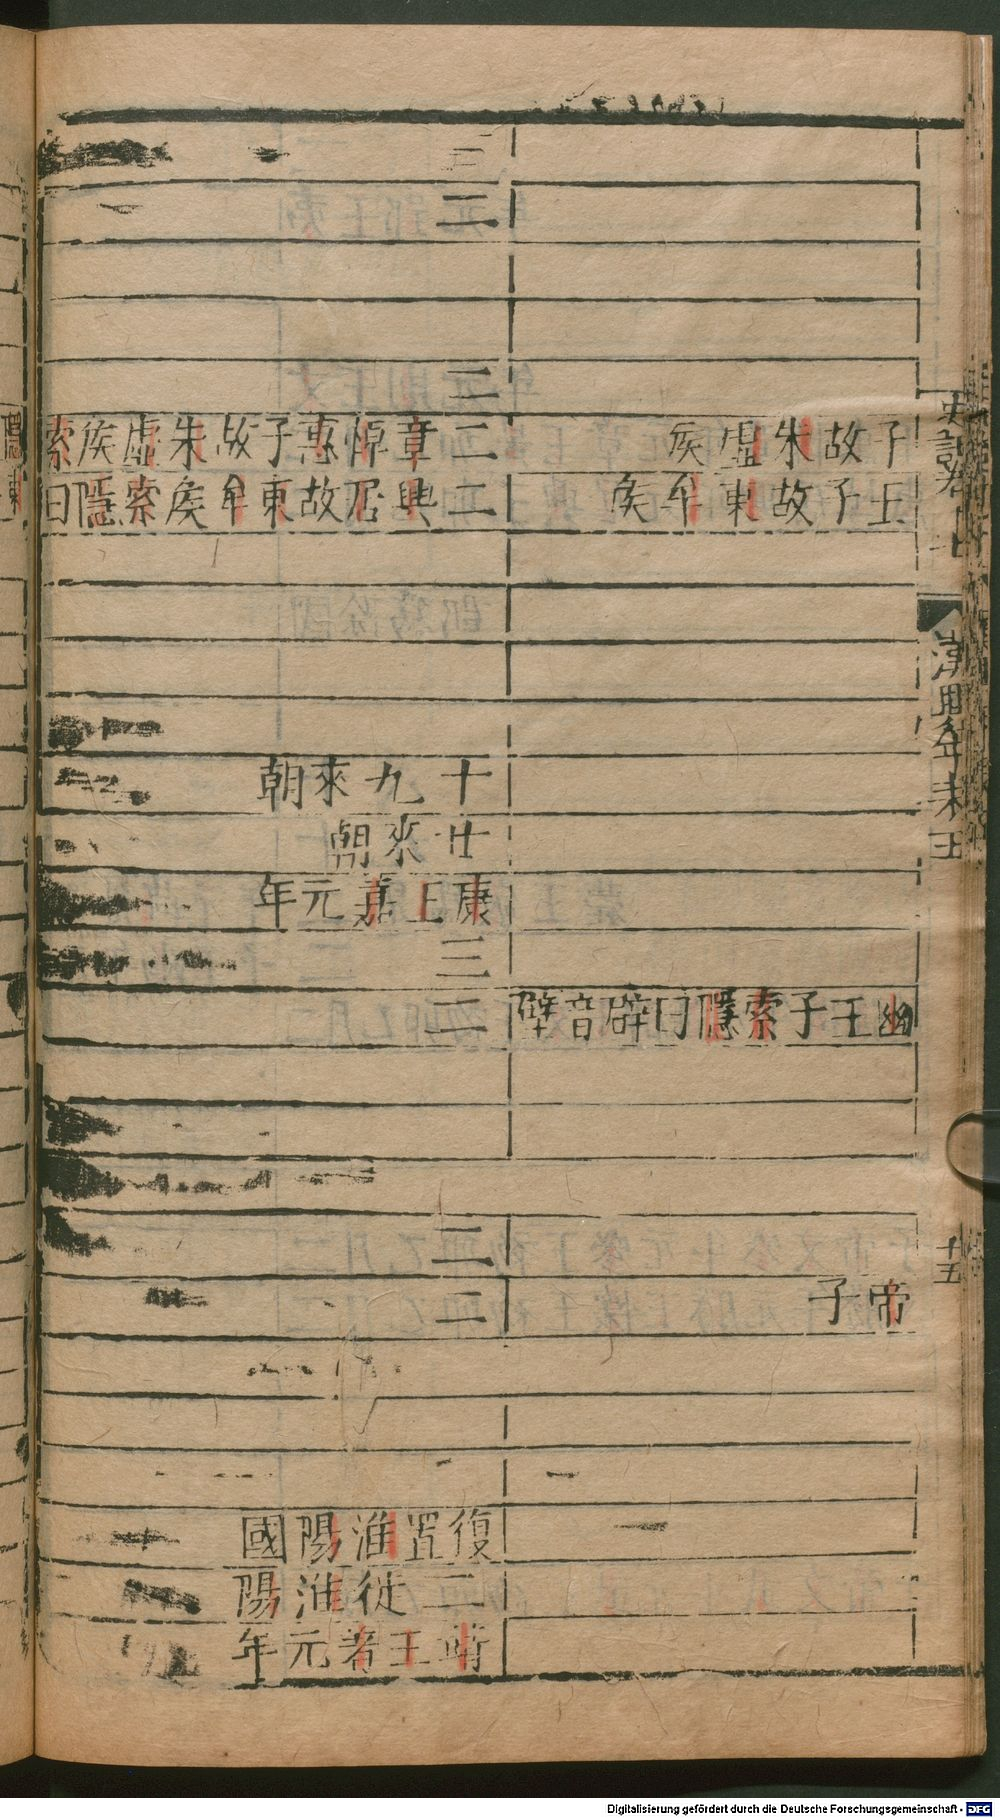 史記
年表五
十五
子故朱虛侯
王子故東牟侯
幽王子索隱曰辟音壁
帝子
三
二
二
二章悼惠子故朱虛侯索
二興居故東牟侯索隱曰
十九來朝
廿來朝
康王嘉元年
三
二
二
二
復置淮陽國
二徙淮陽
靖王著元年
Digitalisierung gefördert durch die Deutsche Forschungsgemeinschaft - DFG